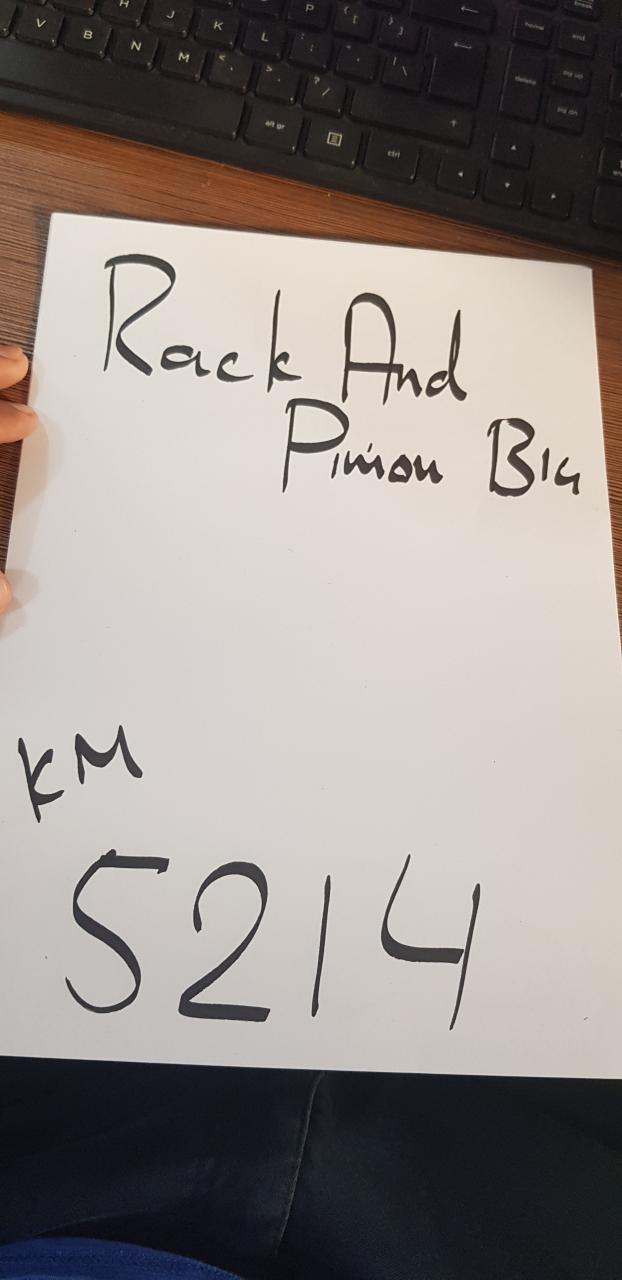 H J K L P { [ } ]
V B N M < , > . ? / : ; | \
home end
delete pg up
pg dn
alt gr ctrl
Rack And
Pinion Big
KM
5214